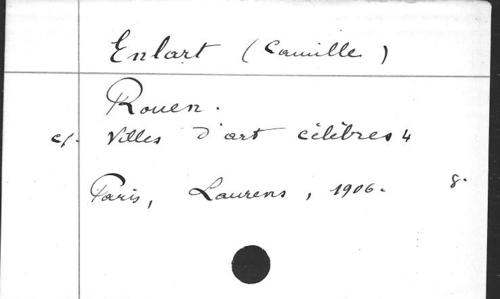 Enlart (Camille)
Rouen.
cf. Villes d'art célèbres 4
Paris, Laurens, 1906. 8.